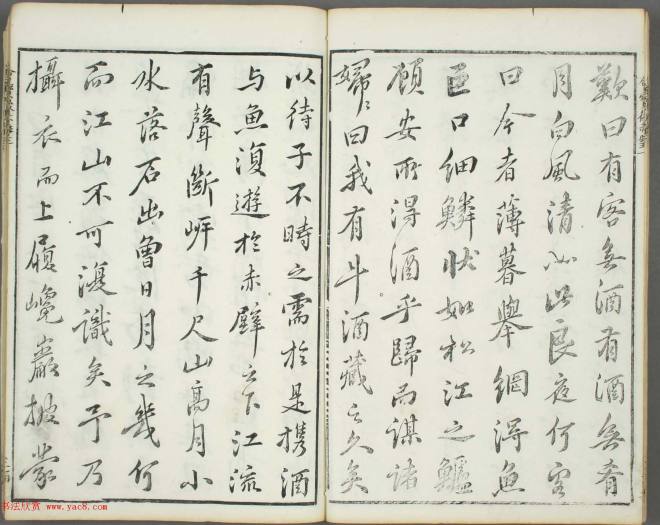 歎曰有客無酒有酒無肴
月白風清如此良夜何客
曰今者薄暮舉網得魚
巨口細鱗狀如松江之鱸
顧安所得酒乎歸而謀諸
婦婦曰我有斗酒藏之久矣
以待子不時之需於是攜酒
与魚復遊於赤壁之下江流
有聲斷岸千尺山高月小
水落石出曾日月之幾何
而江山不可復識矣予乃
攝衣而上履巉巖披蒙
书法欣赏 www.yac8.com